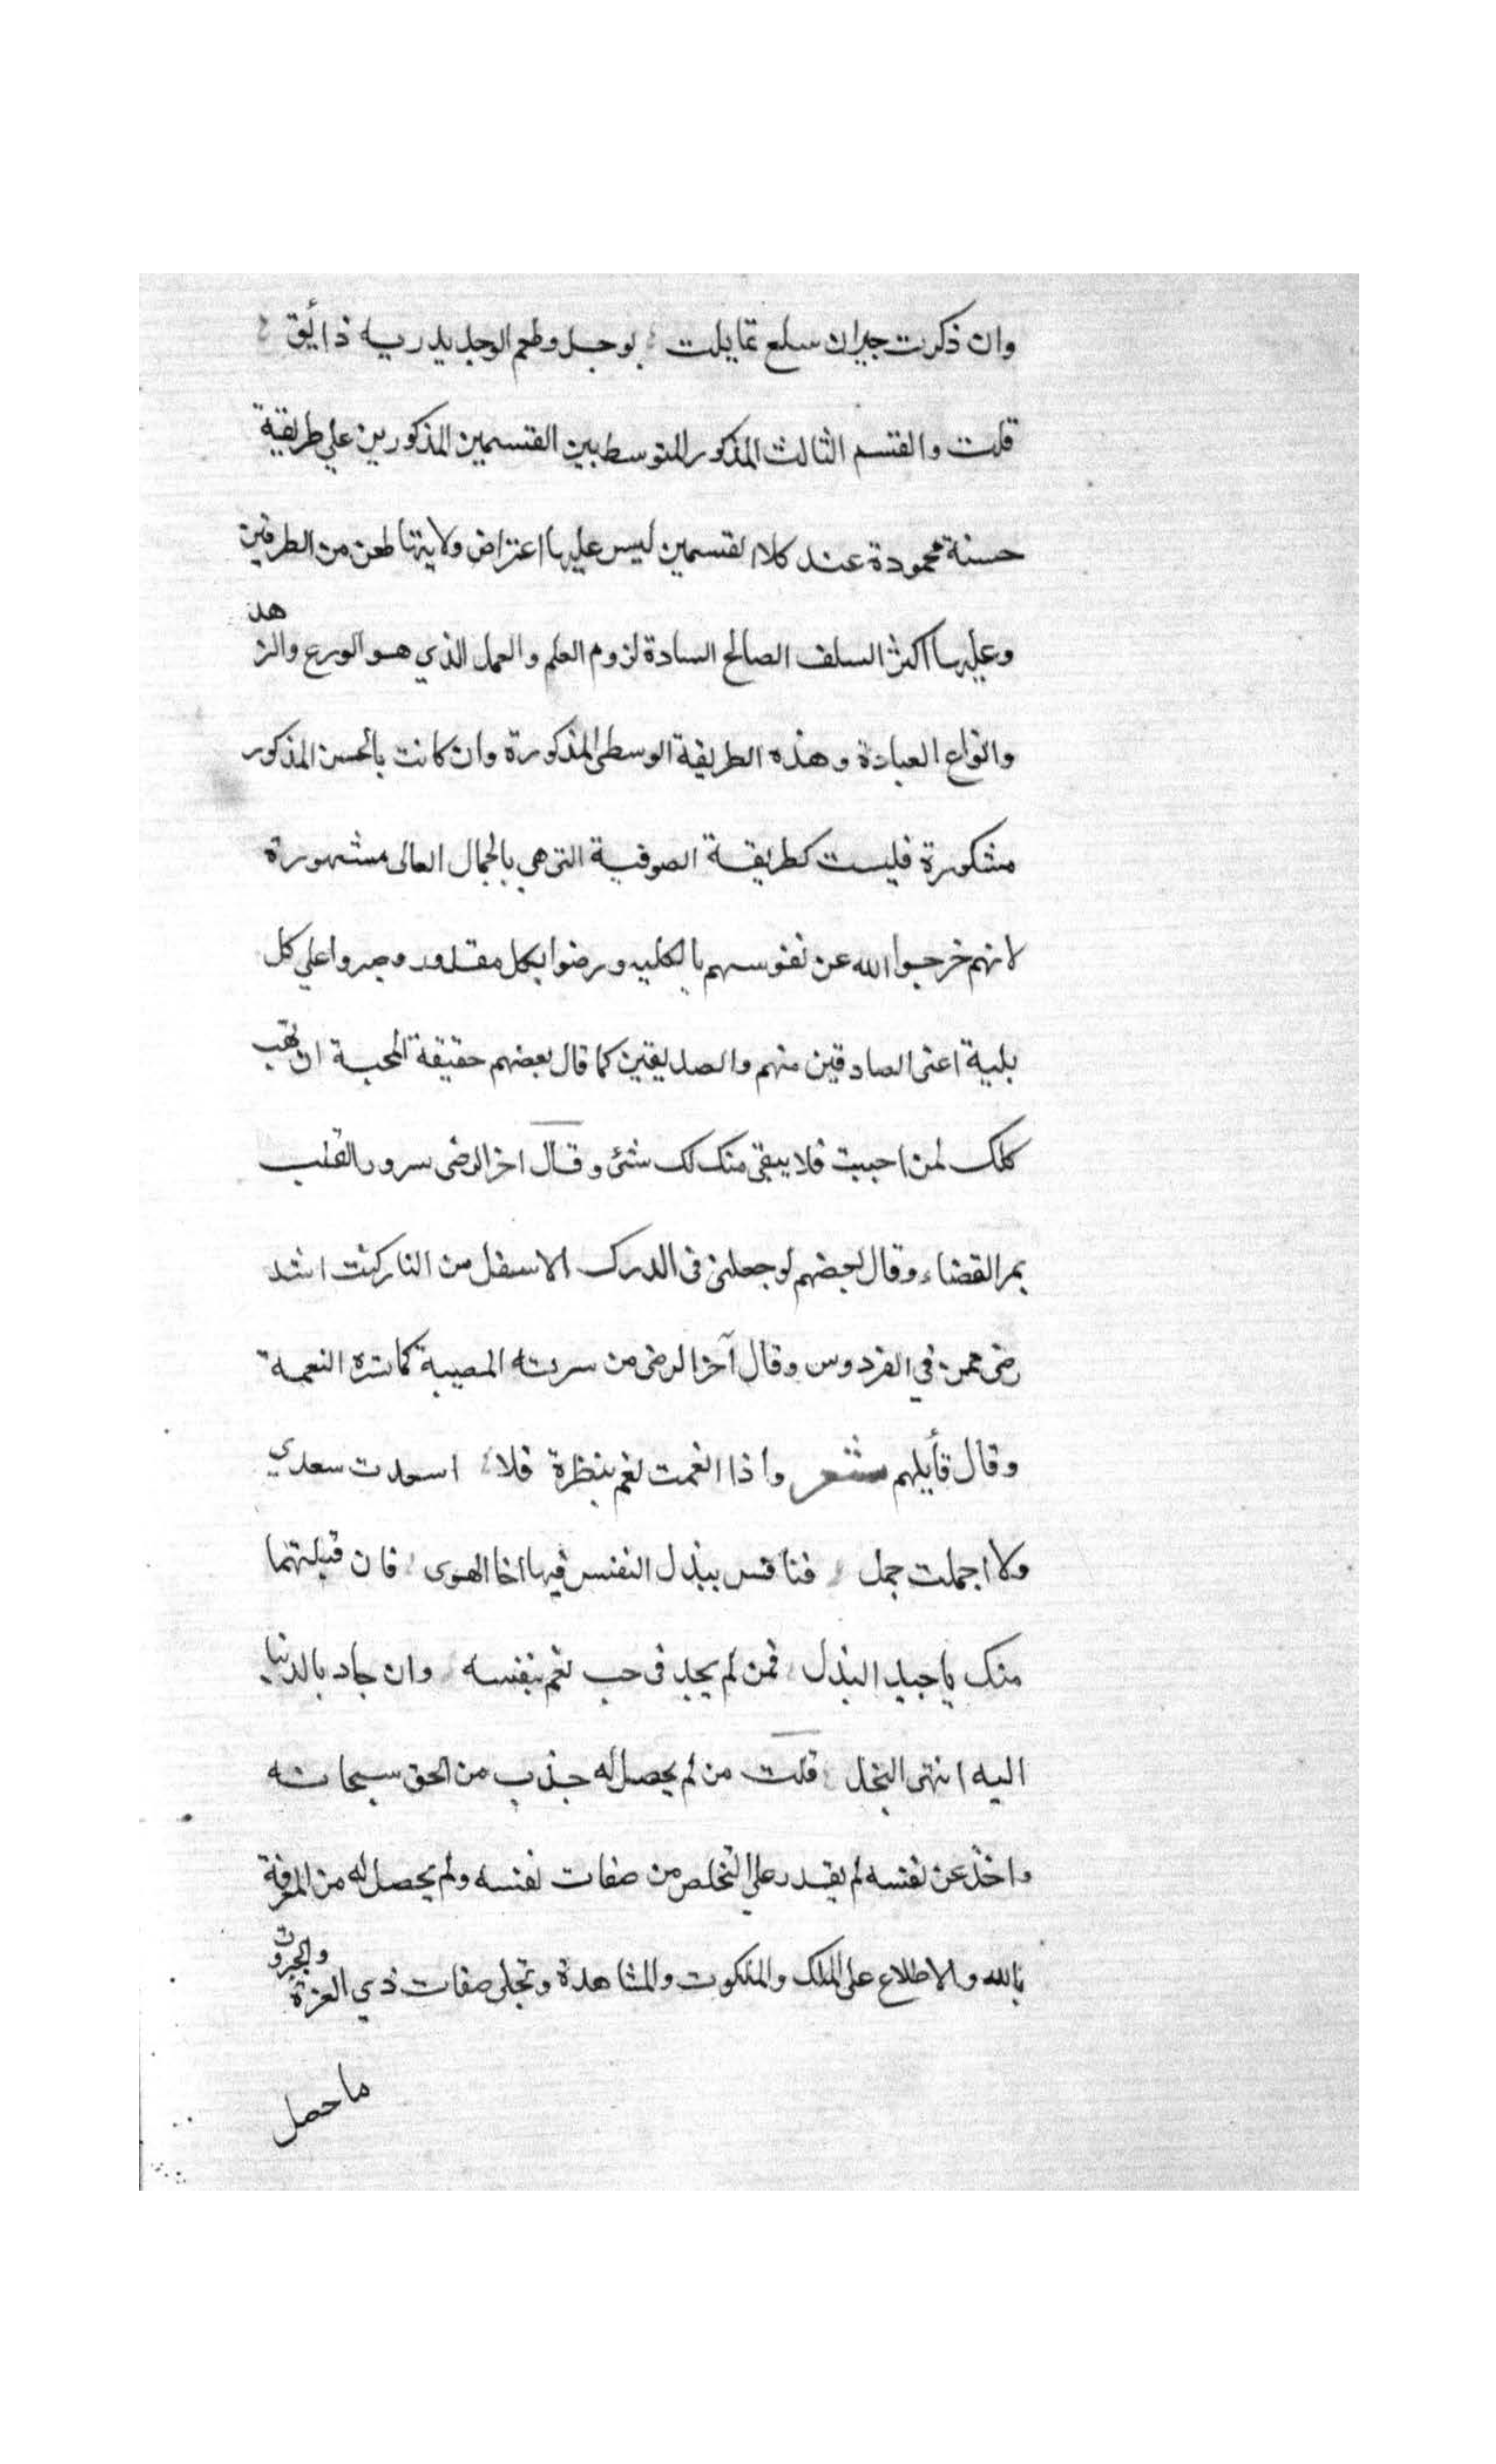 وان ذكرت جيران سلع تمايلت بوجد وطعم الوجد يدريه ذائق
قلت والقسم الثالث المذكور المتوسط بين القسمين المذكورين علي طريقة
حسنة محمودة عند كلا القسمين ليس عليها اعتراض ولا طعن من الطرفين
وعليها اكثر السلف الصالح السادة لزوم العلم والعمل الذي هو الورع والزهد
وانواع العبادة وهذه الطريقة الوسطى المذكورة وان كانت بالحسن المذكور
مشكورة فليست كطريقة الصوفية التى هي بالجمال العالى مشهورة
لانهم خرجوا لله عن نفوسهم بالكليه ورضوا بكل مقدور وصبروا علي كل
بلية اعنى الصادقين منهم والصديقين كما قال بعضهم حقيقة المحبة ان تهب
كلك لمن احببت فلا يبقى منك لك شئ وقال اخر الرضى سرور القلب
بمر القضاء وقال بعضهم لو جعلنى فى الدرك الاسفل من النار كنت اشد
رضى ممن في الفردوس وقال آخر الرضى من سرته المصيبة كما سره النعمة
وقال قأيلهم شعر واذا انعمت نعم بنظرة فلا اسعدت سعدي
ولا اجملت جمل فنافس ببذل النفس فيها اخا الهوى فان قبلتها
منك يا حبذا البذل فمن لم يجد فى حب نعم بنفسه وان جاد بالدنيا
اليه انتهى البخل قلت من لم يحصل له جذب من الحق سبحانه
واخذ عن نفسه لم يقدر علي التخلص من صفات نفسه ولم يحصل له من المعرفة
بالله والاطلاع على الملك والملكوت والمشاهدة وتجلى صفات ذي العزة والجبروت
ما حصل